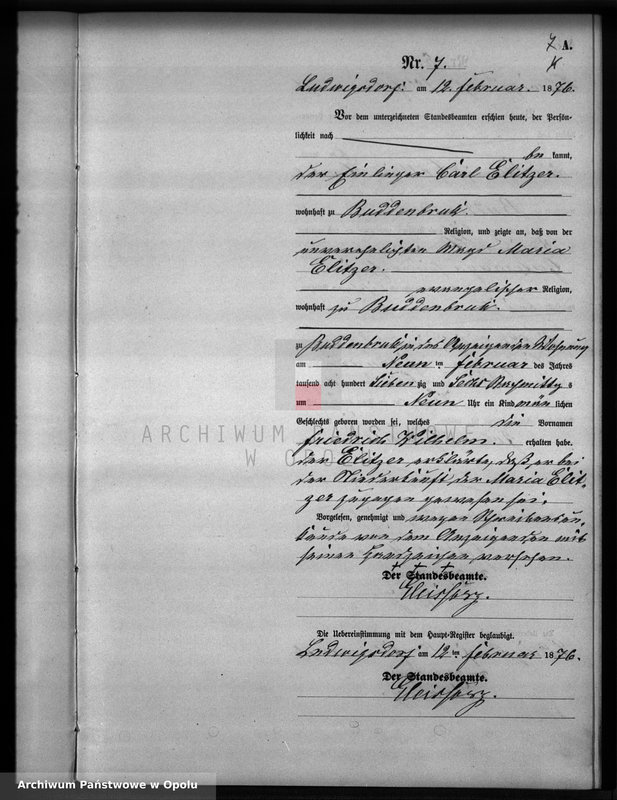 7 A.
Nr. 7.
Ludwigsdorf am 12. Februar. 1876.
Vor dem unterzeichneten Standesbeamten erschien heute, der Persön-
lichkeit nach
be kannt,
der Einlieger Carl Elitzer.
wohnhaft zu Buddenbruk.
Religion, und zeigte an, daß von der
unverehelichten Magd Maria
Elitzer.
evangelischer Religion,
wohnhaft zu Buddenbruk.
zu Buddenbruk in des Anzeigenden Wohnung
am Neun ten Februar des Jahres
tausend acht hundert Sieben zig und Sechs Nachmittag s
um Neun Uhr ein Kind män lichen
Geschlechts geboren worden sei, welches die Vornamen
Friedrich Wilhelm. erhalten habe.
Der Elitzer erklärte, daß er bei
der Niederkunft der Maria Elit-
zer zugegen gewesen sei.
Vorgelesen, genehmigt und wegen Schreibensun-
kunde von dem Anzeigenden mit
seinen Handzeichen versehen.
+ + +
Der Standesbeamte.
Die Uebereinstimmung mit dem Haupt-Register beglaubigt.
Ludwigsdorf am 12 ten Februar 1876.
Der Standesbeamte.
ARCHIWUM PAŃSTWOWE
W OPOLU
Archiwum Państwowe w Opolu